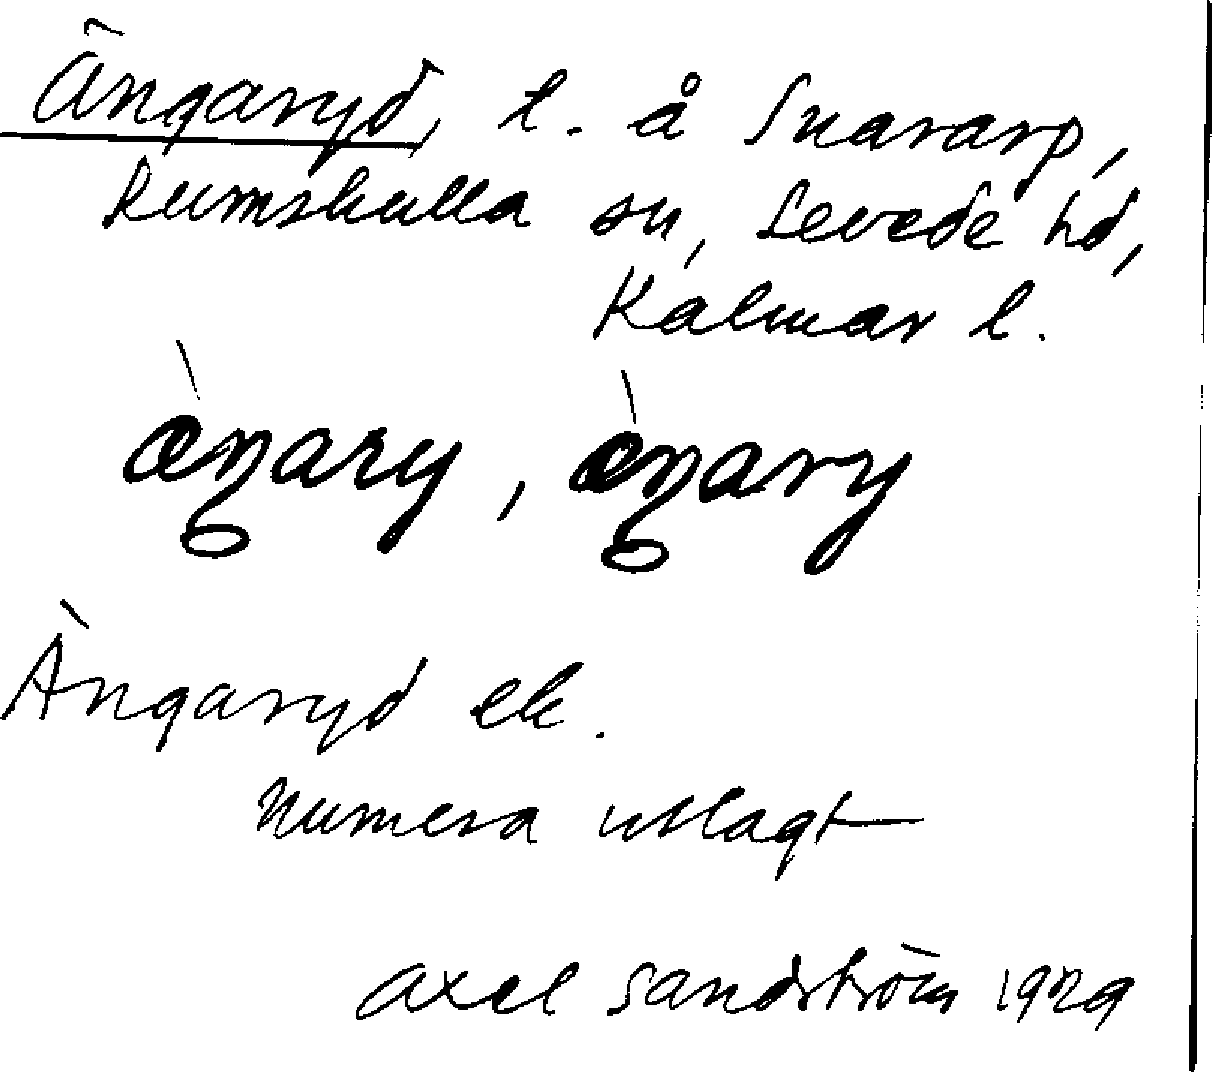 Ängaryd, t. å Snararp,
Rumskulla sn, Sevede hd,
Kalmar l.
Ängaryd ek.
numera utlagt
Axel Sandström 1929